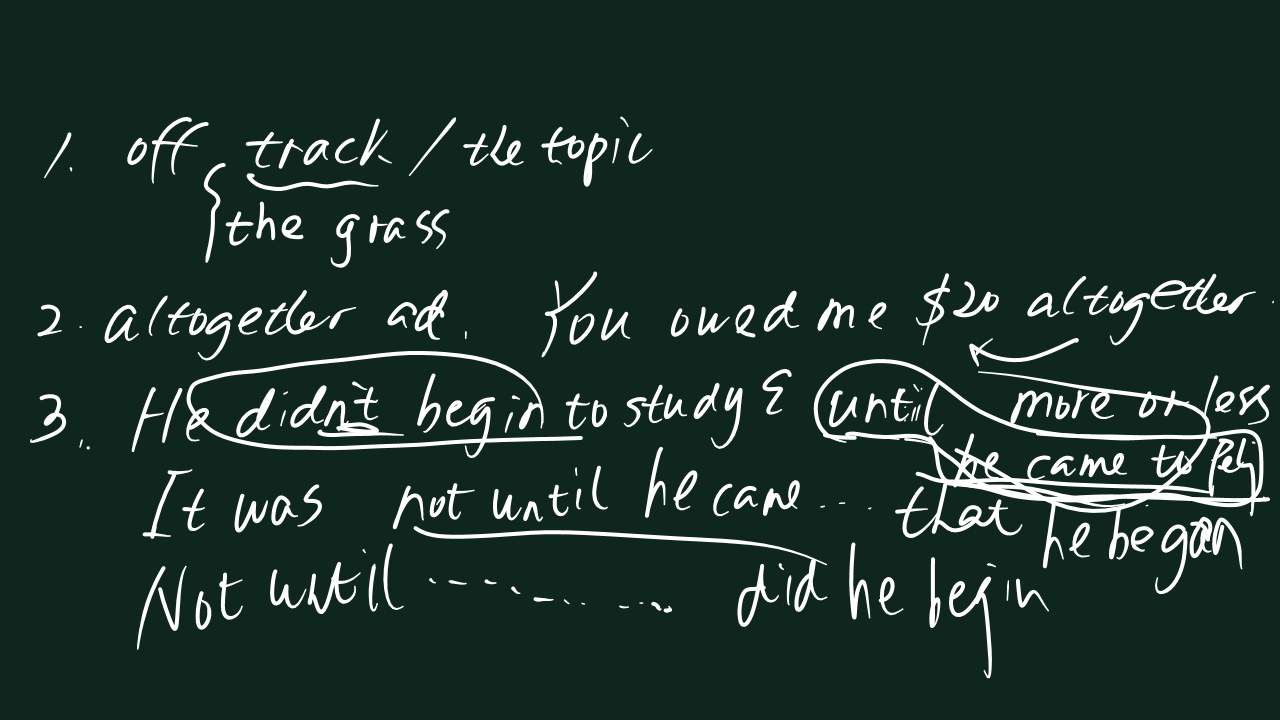 1. off track / the topic
the grass
2. altogether ad. You owed me $20 altogether.
more or less
3. He didn't begin to study E until he came to
It was not until he came ... that he began
Not until ......... did he begin